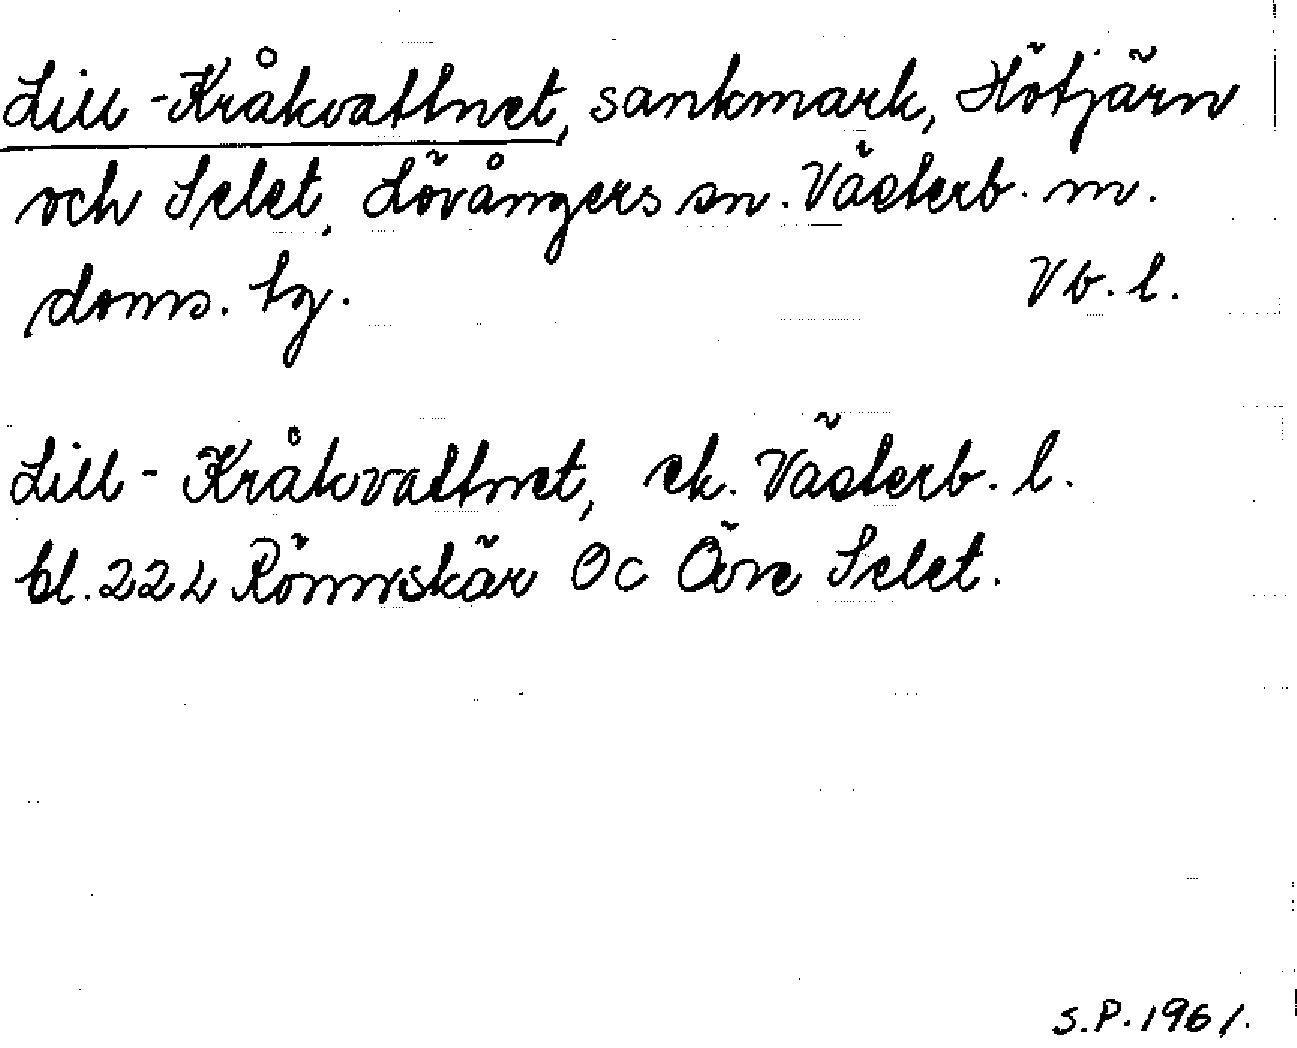 Lill-Kråkvattnet, sankmark, Hötjärn
och Selet, Lövångers sn. Västerb. m.
doms. tg. Vb. l.
Lill-Kråkvattnet, ek. Västerb. l.
bl. 22 L Rönnskär 0 c Övre Selet.
S.P. 1961.